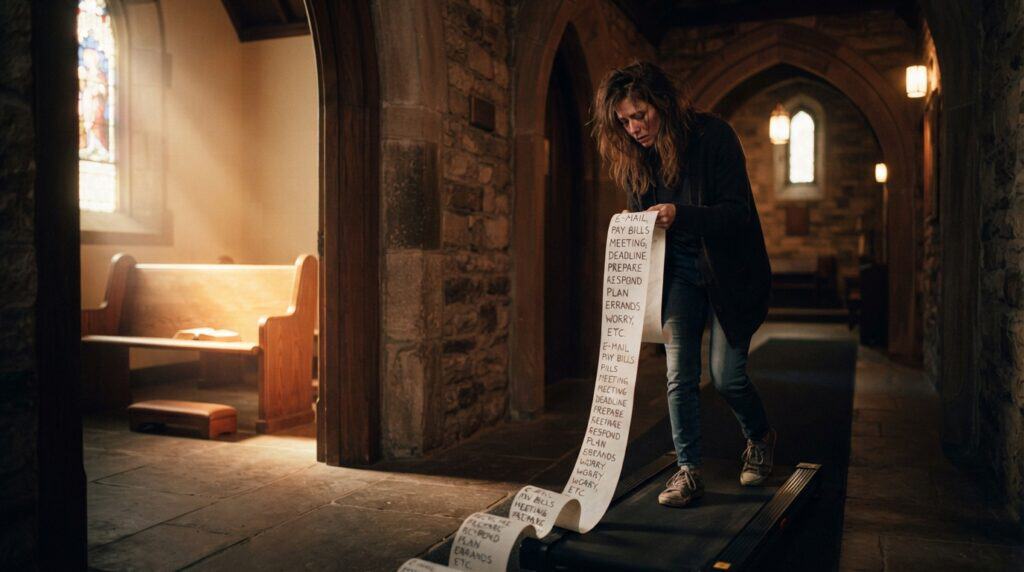 E-MAIL,
PAY BILLS
MEETING,
DEADLINE,
PREPARE
RESPOND
PLAN
ERRANDS
WORRY,
ETC.
E-MAIL
PAY BILLS,
PILLS
MEETING
MECTING
DEADLINE
PREPARE
RESPOND
PLAN
EBRANDS
WORRY
WORRY
WORRY,
ETC
PAY BILLS
MEETING
PREPARE
PLAN
ERRANDS
ETC.